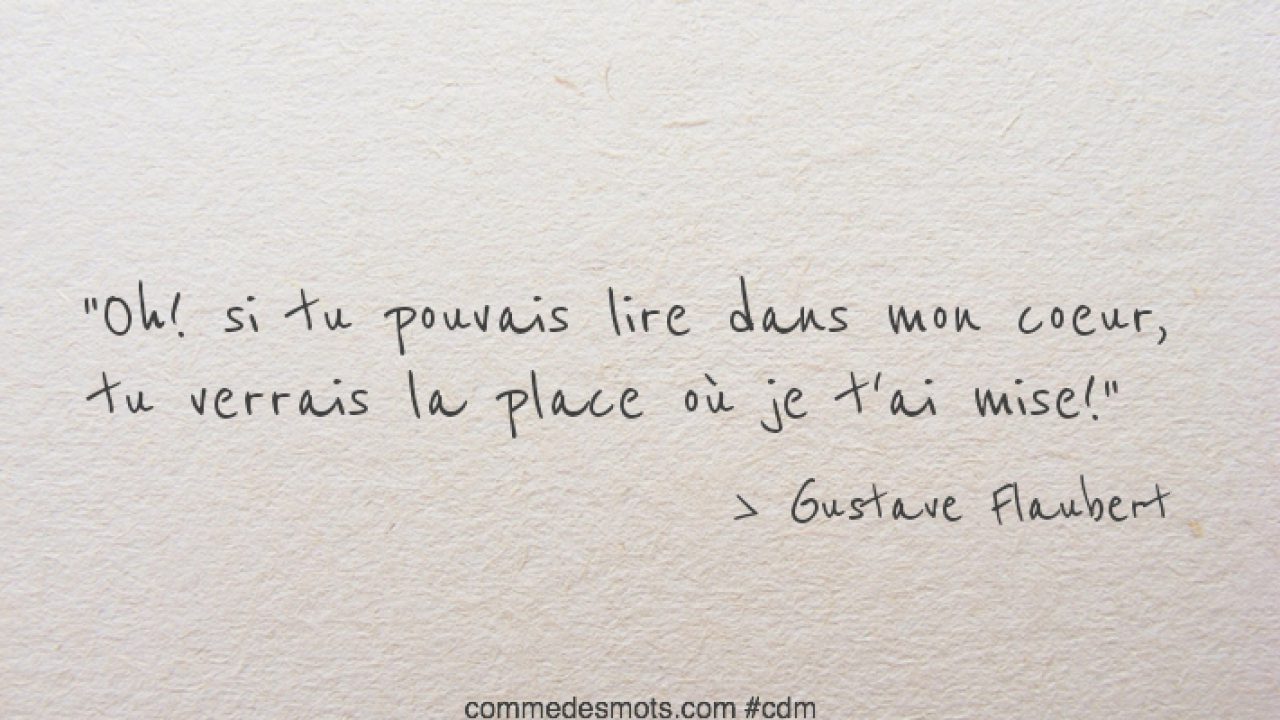 "Oh! si tu pouvais lire dans mon coeur,
tu verrais la place où je t'ai mise!"
> Gustave Flaubert
commedesmots.com #cdm